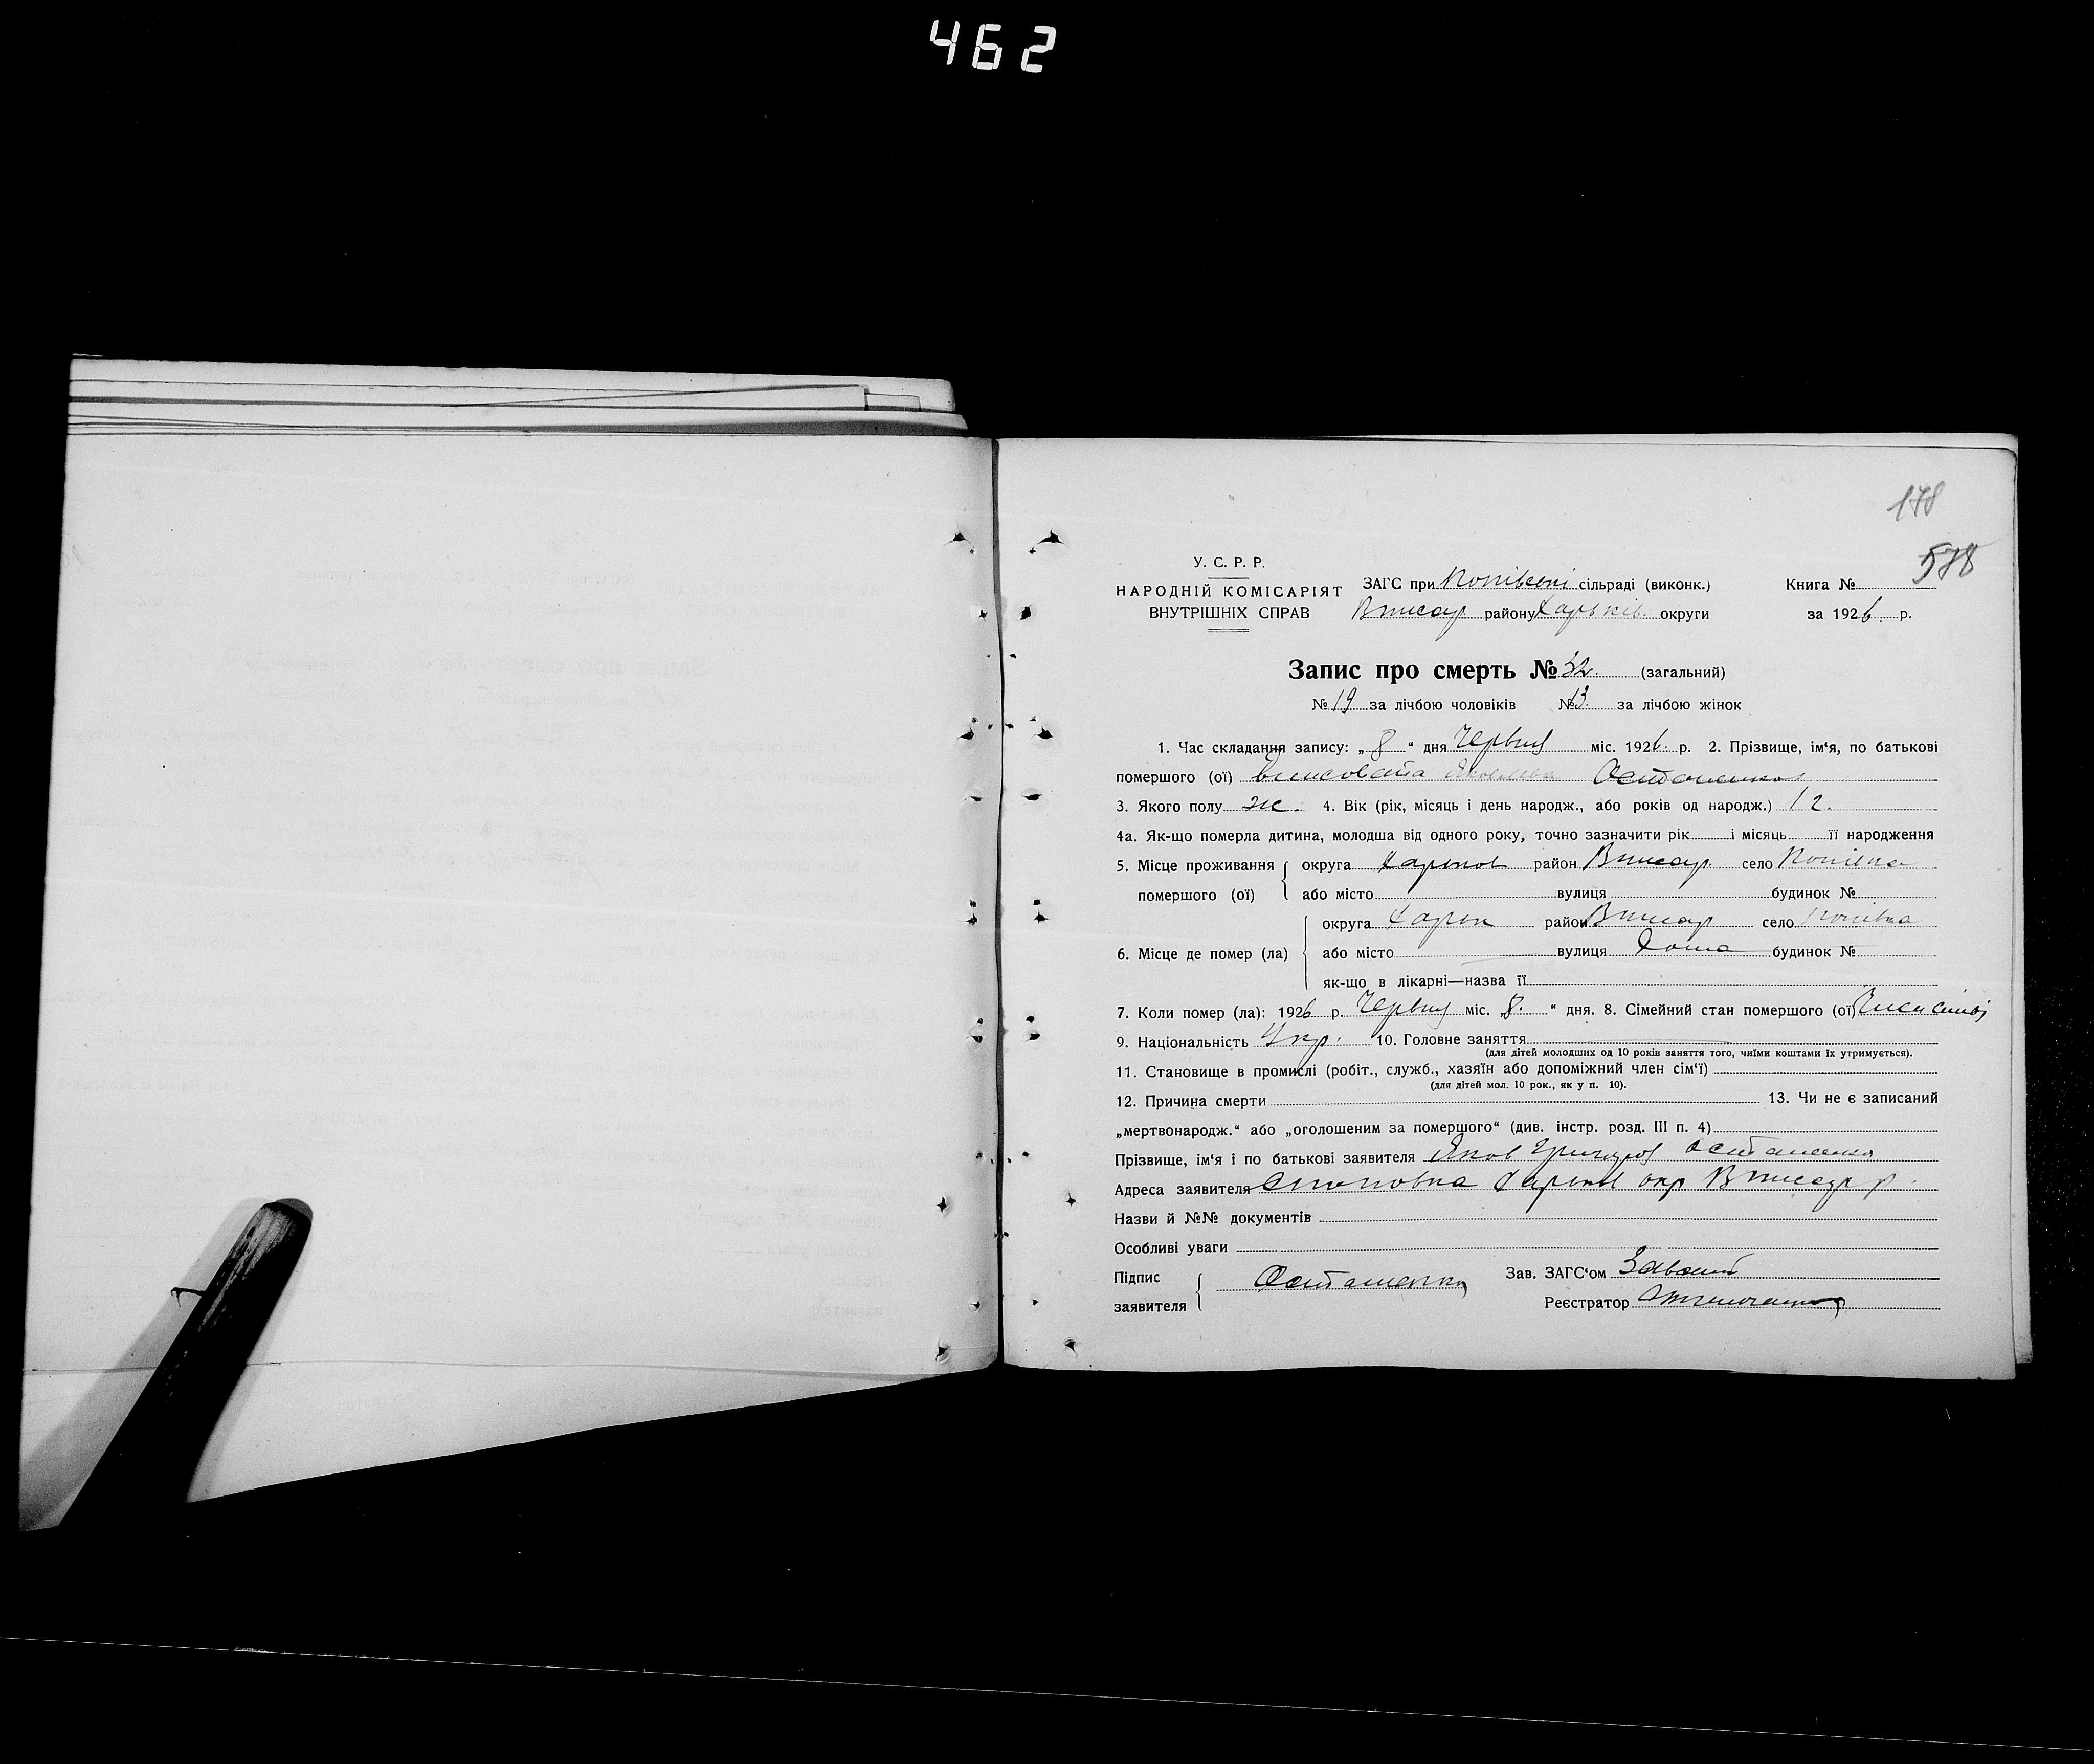 462
178
578
У. С. Р. Р.
НАРОДНІЙ КОМІСАРІЯТ
ВНУТРІШНІХ СПРАВ
ЗАГС при сільраді (виконк.)
району Харьків. округи
Книга №
за 1926 р.
Запис про смерть № 32. (загальний)
№ 19 за лічбою чоловіків № 13. за лічбою жінок
1. Час складання запису: „ 8 “ дня Червня міс. 1926. р. 2. Прізвище, ім‘я, по батькові
помершого (ої) Яковлевна Осташенко
3. Якого полу ж. 4. Вік (рік, місяць і день народж., або років од народж.) 12.
4а. Як-що померла дитина, молодша від одного року, точно зазначити рік і місяць її народження
5. Місце проживання помершого (ої) округа Харьков район село
або місто вулиця будинок №
6. Місце де помер (ла) округа Харьк район село
або місто вулиця Дома будинок №
як-що в лікарні—назва її
7. Коли помер (ла): 1926 р. Червня міс. „8. “ дня. 8. Сімейний стан помершого (ої)
9. Національність Укр. 10. Головне заняття
(для дітей молодших од 10 років заняття того, чиїми коштами їх утримується).
11. Становище в промислі (робіт., служб., хазяїн або допоміжний член сім‘ї)
(для дітей мол. 10 рок., як у п. 10).
12. Причина смерти 13. Чи не є записаний
„мертвонародж.“ або „оголошеним за помершого“ (див. інстр. розд. III п. 4)
Прізвище, ім‘я і по батькові заявителя Яков Григоров Осташенко
Адреса заявителя Харьков окр р.
Назви й №№ документів
Особливі уваги
Підпис заявителя Осташенко
Зав. ЗАГС‘ом
Реєстратор